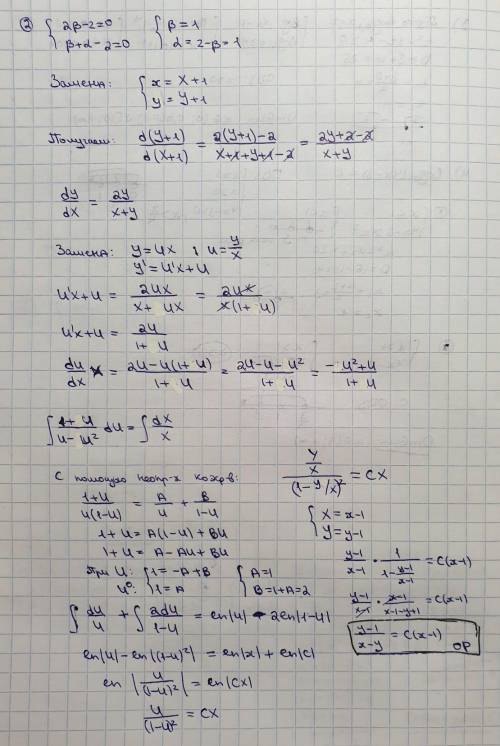 ② { 2β-2=0 { β=1
β+α-2=0 α=2-β=1
Замена: { x = X+1
y = Y+1
Получаем: d(Y+1)/d(X+1) = (2(Y+1)-2)/(X+1+Y+1-2) = (2Y+2-2)/(X+Y)
dY/dX = 2Y/(X+Y)
Замена: Y=UX ; U=Y/X
Y'=U'X+U
U'X+U = 2UX/(X+UX) = 2UX/(X(1+U))
U'X+U = 2U/(1+U)
dU/dX X = (2U-U(1+U))/(1+U) = (2U-U-U²)/(1+U) = (-U²+U)/(1+U)
∫ (1+U)/(U-U²) dU = ∫ dX/X
С помощью неопр-х коэф-в:
(1+U)/(U(1-U)) = A/U + B/(1-U)
1+U = A(1-U)+BU
1+U = A-AU+BU
При U: { 1=-A+B { A=1
U⁰: 1=A B=1+A=2
∫ dU/U + ∫ 2dU/(1-U) = ln|U| - 2ln|1-U|
ln|U| - ln|(1-U)²| = ln|X| + ln|C|
ln |U/(1-U)²| = ln|CX|
U/(1-U)² = CX
(Y/X)/(1-Y/X)² = CX
{ X=x-1
Y=y-1
(y-1)/(x-1) · 1/(1-(y-1)/(x-1)) = C(x-1)
(y-1)/(x-1) · (x-1)/(x-1-y+1) = C(x-1)
(y-1)/(x-y) = C(x-1) ОР